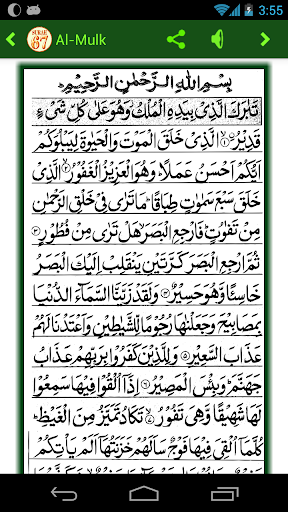 3:55
SURAH 67 Al-Mulk
بِسْمِ اللهِ الرَّحْمٰنِ الرَّحِيْمِ
تَبٰرَكَ الَّذِیْ بِيَدِهِ الْمُلْكُ وَهُوَ عَلٰى كُلِّ شَیْءٍ
قَدِيْرُۨ ۝١ الَّذِیْ خَلَقَ الْمَوْتَ وَالْحَيٰوةَ لِيَبْلُوَكُمْ
اَيُّكُمْ اَحْسَنُ عَمَلًا ؕ وَهُوَ الْعَزِيْزُ الْغَفُوْرُ ۝٢ الَّذِیْ
خَلَقَ سَبْعَ سَمٰوٰتٍ طِبَاقًا ؕ مَا تَرٰى فِیْ خَلْقِ الرَّحْمٰنِ
مِنْ تَفٰوُتٍ ؕ فَارْجِعِ الْبَصَرَ هَلْ تَرٰى مِنْ فُطُوْرٍ ۝٣
ثُمَّ ارْجِعِ الْبَصَرَ كَرَّتَيْنِ يَنْقَلِبْ اِلَيْكَ الْبَصَرُ
خَاسِئًا وَّهُوَ حَسِيْرٌ ۝٤ وَلَقَدْ زَيَّنَّا السَّمَآءَ الدُّنْيَا
بِمَصَابِيْحَ وَجَعَلْنٰهَا رُجُوْمًا لِّلشَّيٰطِيْنِ وَاَعْتَدْنَا لَهُمْ
عَذَابَ السَّعِيْرِ ۝٥ وَلِلَّذِيْنَ كَفَرُوْا بِرَبِّهِمْ عَذَابُ
جَهَنَّمَ ؕ وَبِئْسَ الْمَصِيْرُ ۝٦ اِذَاۤ اُلْقُوْا فِيْهَا سَمِعُوْا
لَهَا شَهِيْقًا وَّهِیَ تَفُوْرُ ۝٧ تَكَادُ تَمَيَّزُ مِنَ الْغَيْظِ ؕ
كُلَّمَاۤ اُلْقِیَ فِيْهَا فَوْجٌ سَاَلَهُمْ خَزَنَتُهَاۤ اَلَمْ يَاْتِكُمْ